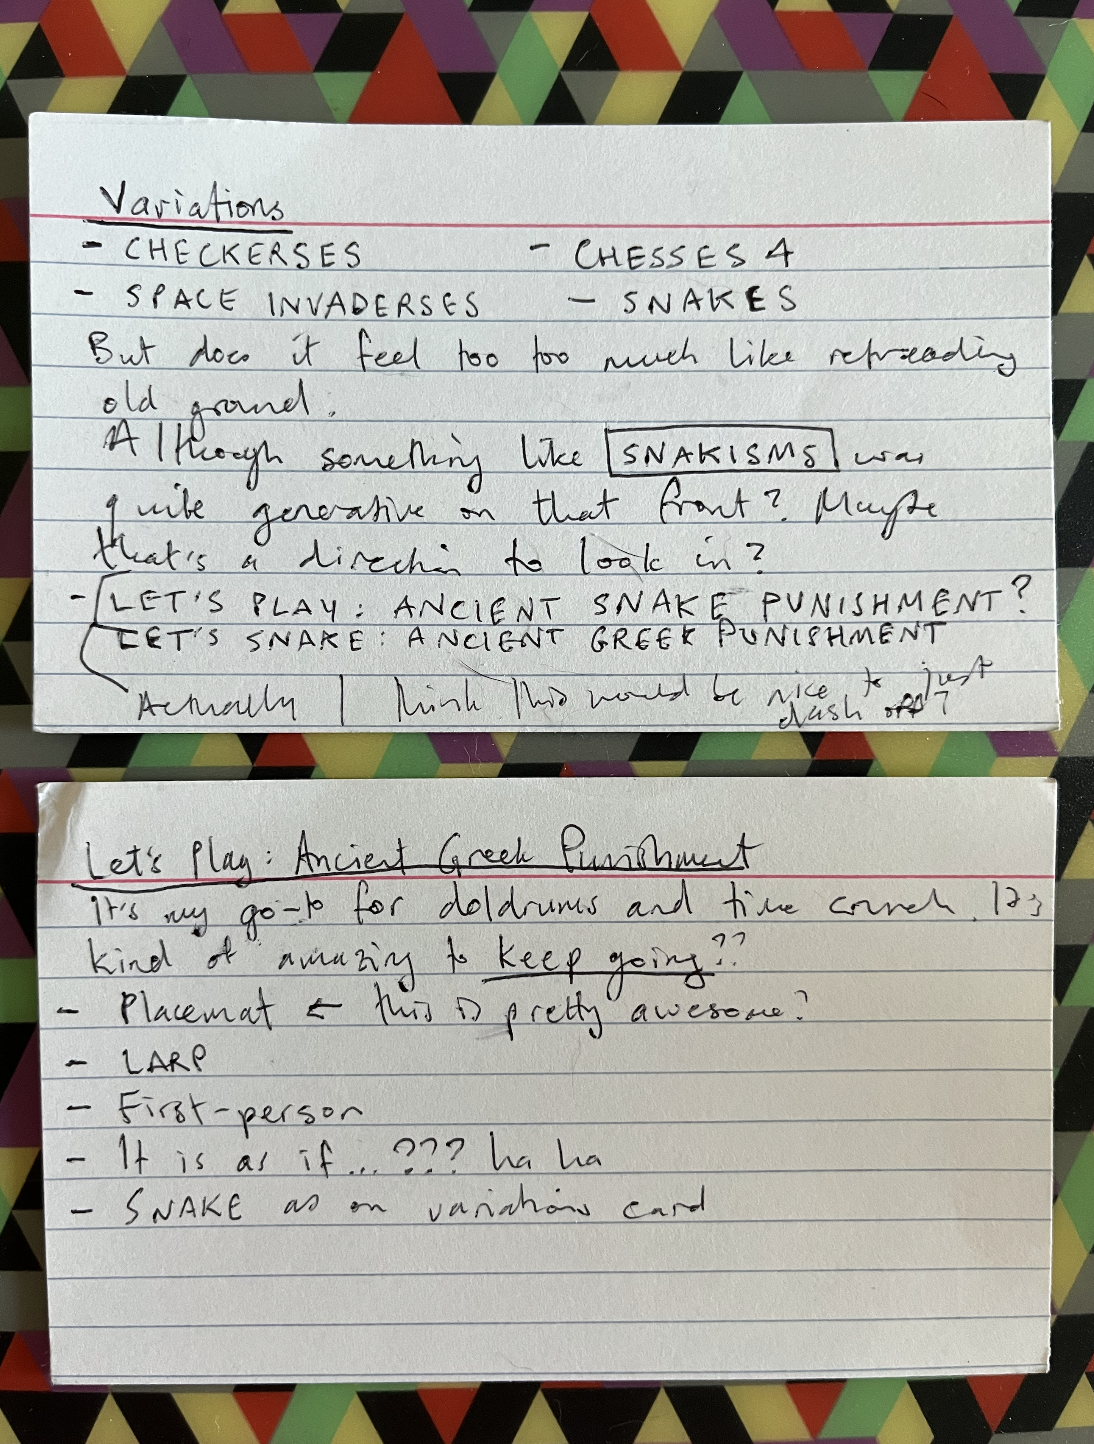 Variations
- CHECKERSES - CHESSES 4
- SPACE INVADERSES - SNAKES
But does it feel too too much like retreading
old ground.
Although something like SNAKISMS was
quite generative on that front? Maybe
that's a direction to look in?
- LET'S PLAY: ANCIENT SNAKE PUNISHMENT?
LET'S SNAKE: ANCIENT GREEK PUNISHMENT
Actually I think this would be nice to just
dash off?
Let's Play: Ancient Greek Punishment
It's my go-to for doldrums and time crunch. It's
kind of amazing to keep going??
- Placemat ← this is pretty awesome?
- LARP
- First-person
- It is as if...??? ha ha
- SNAKE as on variations card